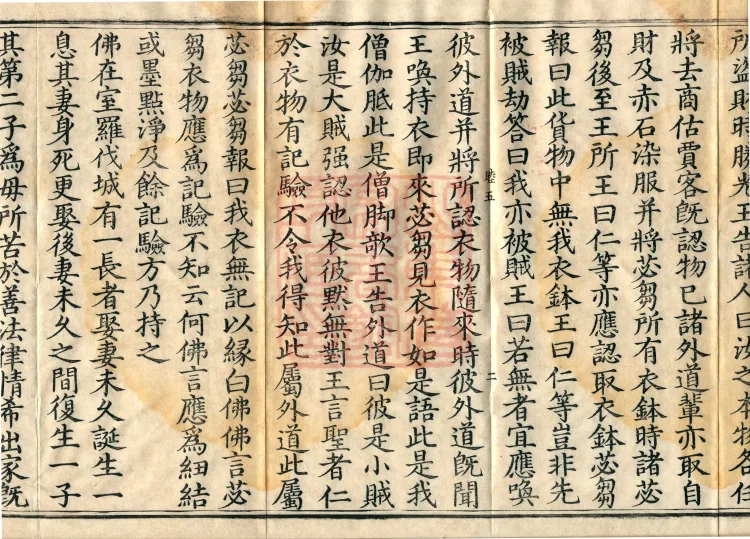 所盜財時勝光王告諸人曰汝之本物各任
將去商估賈客旣認物已諸外道輩亦取自
財及赤石染服并將苾芻所有衣鉢時諸苾
芻後至王所王曰仁等亦應認取衣鉢苾芻
報曰此貨物中無我衣鉢王曰仁等豈非先
被賊劫答曰我亦被賊王曰若無者宜應喚
睦五 二
彼外道并將所認衣物隨來時彼外道旣聞
王喚持衣即來苾芻見衣作如是語此是我
僧伽胝此是僧脚欹王告外道曰彼是小賊
汝是大賊强認他衣彼默無對王言聖者仁
於衣物有記驗不令我得知此屬外道此屬
苾芻苾芻報曰我衣無記以緣白佛佛言苾
芻衣物應爲記驗不知云何佛言應爲紐結
或墨點淨及餘記驗方乃持之
佛在室羅伐城有一長者娶妻未久誕生一
息其妻身死更娶後妻未久之間復生一子
其第二子爲母所苦於善法律情希出家旣